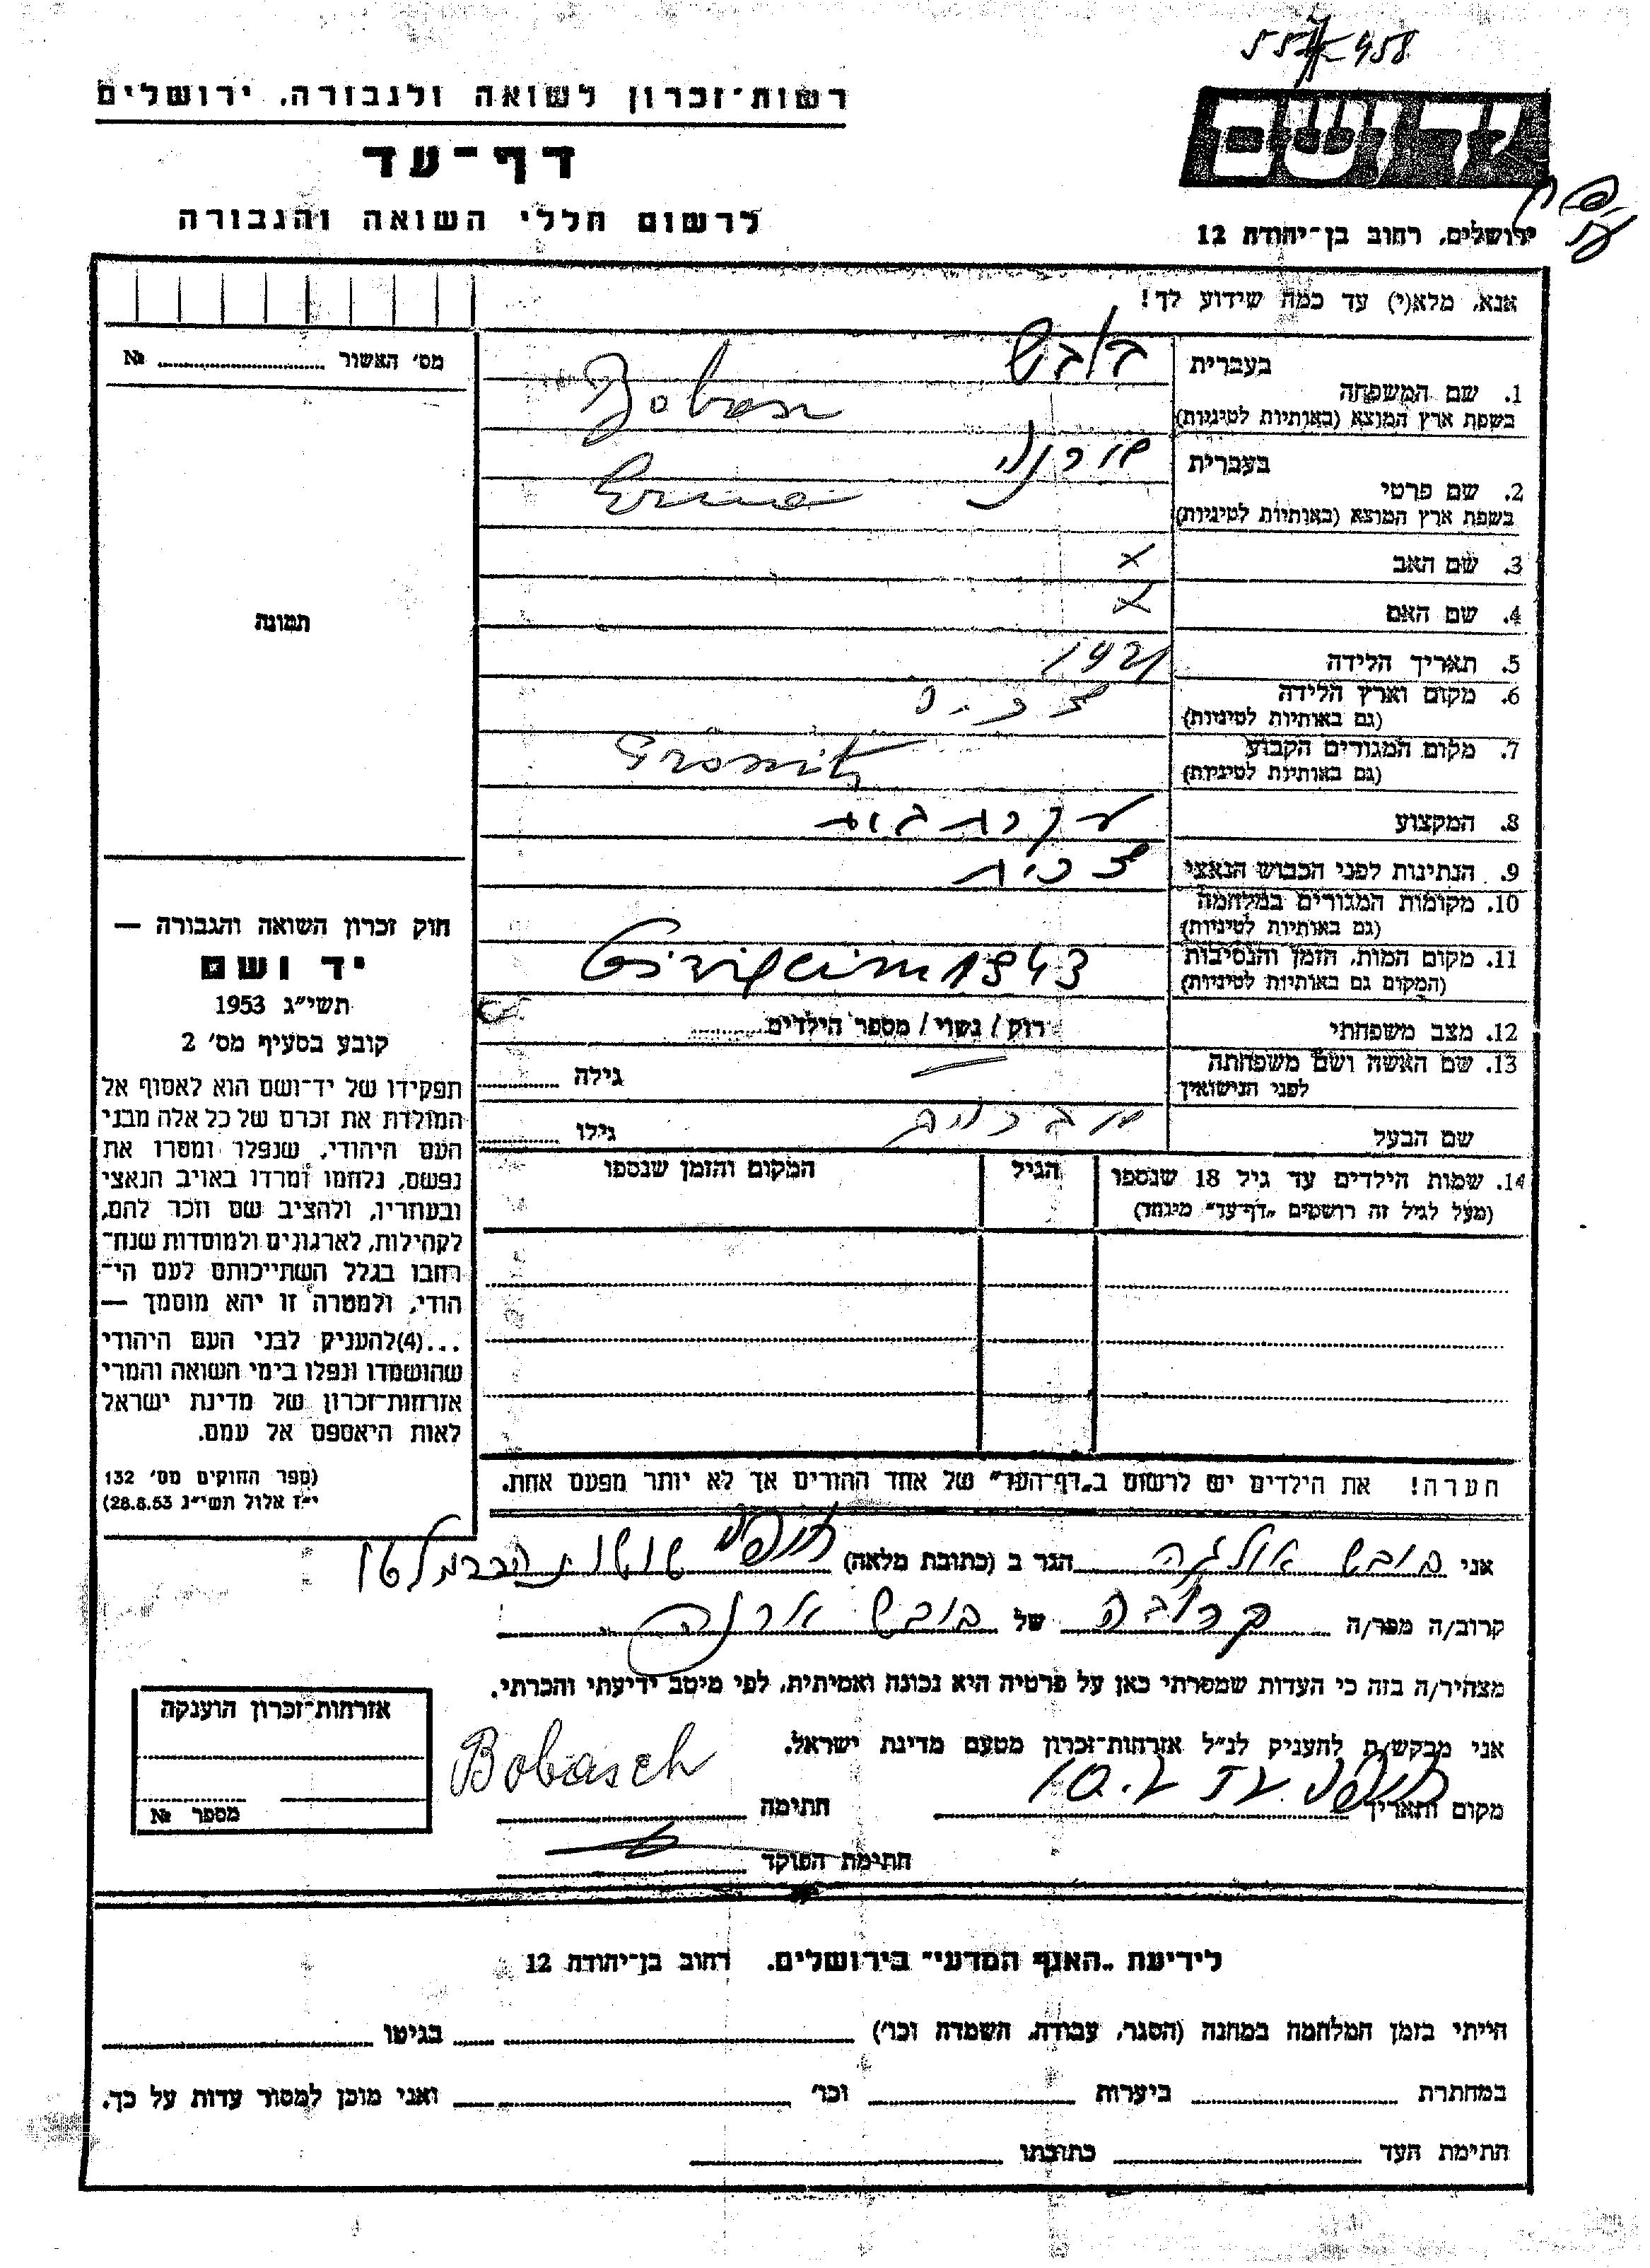 רשות־זכרון לשואה ולגבורה, ירושלים
דף־עד
לרשום חללי השואה והגבורה
יד ושם
ירושלים, רחוב בן־יהודה 12
אנא, מלא(י) עד כמה שידוע לך!
מס׳ האשור № ..........
תמונה
1. שם המשפחה
בעברית בובש
בשפת ארץ המוצא (באותיות לטיניות)
2. שם פרטי
בעברית
בשפת ארץ המוצא (באותיות לטיניות) Erna
3. שם האב x
4. שם האם x
5. תאריך הלידה 1921
6. מקום וארץ הלידה
(גם באותיות לטיניות)
7. מקום המגורים הקבוע
(גם באותיות לטיניות)
8. המקצוע עקרת בית
9. הנתינות לפני הכבוש הנאצי צכית
10. מקומות המגורים במלחמה
(גם באותיות לטיניות)
11. מקום המות, הזמן והנסיבות 1943
(המקום גם באותיות לטיניות)
12. מצב משפחתי רוק / נשוי / מספר הילדים
13. שם האשה ושם משפחתה גילה
לפני הנישואין
שם הבעל גילו
14. שמות הילדים עד גיל 18 שנספו הגיל המקום והזמן שנספו
(מעל לגיל זה רושמים „דף־עד״ מיוחד)
חוק זכרון השואה והגבורה —
יד ושם
תשי״ג 1953
קובע בסעיף מס׳ 2
תפקידו של יד־ושם הוא לאסוף אל
המולדת את זכרם של כל אלה מבני
העם היהודי, שנפלו ומסרו את
נפשם, נלחמו ומרדו באויב הנאצי
ובעוזריו, ולהציב שם וזכר להם,
לקהילות, לארגונים ולמוסדות שנח־
רחבו בגלל השתייכותם לעם הי־
הודי, ולמטרה זו יהא מוסמך —
...(4)להעניק לבני העם היהודי
שהושמדו ונפלו בימי השואה והמרי
אזרחות־זכרון של מדינת ישראל
לאות היאספם אל עמם.
(ספר החוקים מס׳ 132
י״ז אלול תשי״ג 28.8.53)
הערה! את הילדים יש לרשום ב„דף־העד״ של אחד ההורים אך לא יותר מפעם אחת.
אני בובש אולגה הגר ב (כתובת מלאה)
קרוב/ה מפר/ה קרובה של בובש ארנה
מצהיר/ה בזה כי העדות שמסרתי כאן על פרטיה היא נכונה ואמיתית, לפי מיטב ידיעתי והכרתי.
אני מבקש/ת להעניק לנ״ל אזרחות־זכרון מטעם מדינת ישראל.
מקום ותאריך חתימה Bobasch
חתימת הפוקד
אזרחות־זכרון הוענקה
מספר №
לידיעת „האגף המדעי״ בירושלים. רחוב בן־יהודה 12
הייתי בזמן המלחמה במחנה (הסגר, עבודה, השמדה וכו׳) בגיטו
במחתרת ביערות וכו׳ ואני מוכן למסור עדות על כך.
חתימת העד כתובתו